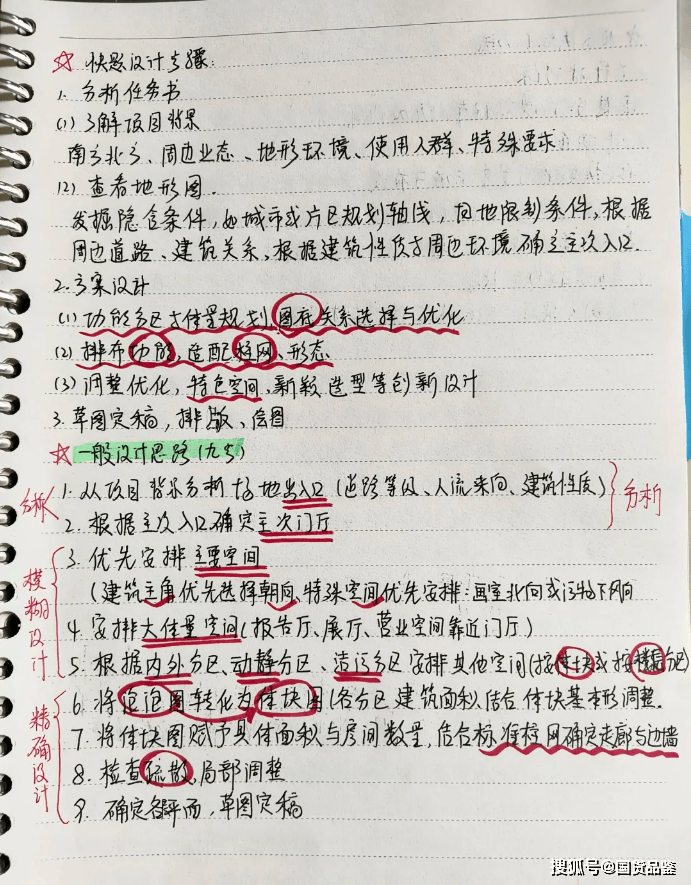 ☆ 快题设计步骤:
1. 分析任务书
(1) 了解项目背景
南方北方、周边业态、地形环境、使用人群、特殊要求
(2) 查看地形图.
发掘隐含条件,如城市或片区规划轴线,用地限制条件,根据
周边道路、建筑关系,根据建筑性质与周边环境确定主次入口.
2. 方案设计
(1) 功能分区 大体量规划,图底关系选择与优化
(2) 排布功能,适配柱网、形态
(3) 调整优化,特色空间、新颖造型等创新设计
3. 草图定稿,排版、绘图
☆ 一般设计思路(九步)
分析
1. 从项目背景分析场地出入口(道路等级、人流来向、建筑性质)
分析
2. 根据主次入口确定主次门厅
模糊设计
3. 优先安排主要空间
(建筑主角优先选择朝向,特殊空间优先安排:画室北向或污物下风向
4. 安排大体量空间(报告厅、展厅、营业空间靠近门厅)
5. 根据内外分区、动静分区、洁污分区安排其他空间(按体块或按楼层分区)
精确设计
6. 将泡泡图转化为体块图(各分区建筑面积,结合体块基本形调整.
7. 将体块图赋予具体面积与房间数量,结合标准柱网确定走廊与边墙
8. 检查疏散,局部调整
9. 确定各平面,草图定稿
搜狐号@国货品鉴